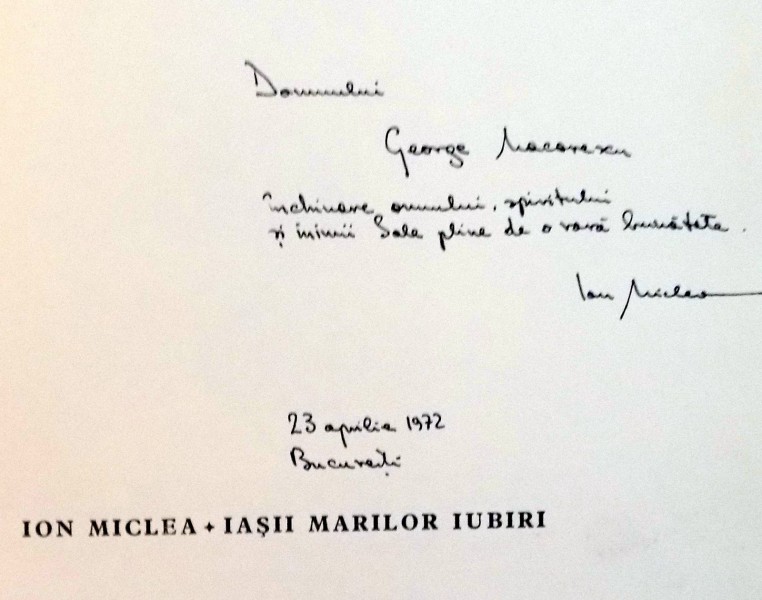 Domnului
George Macovescu
închinare omului, spiritului
și inimii Sale pline de o rară bunătate.
Ion Miclea
23 aprilie 1972
București
ION MICLEA + IAȘII MARILOR IUBIRI